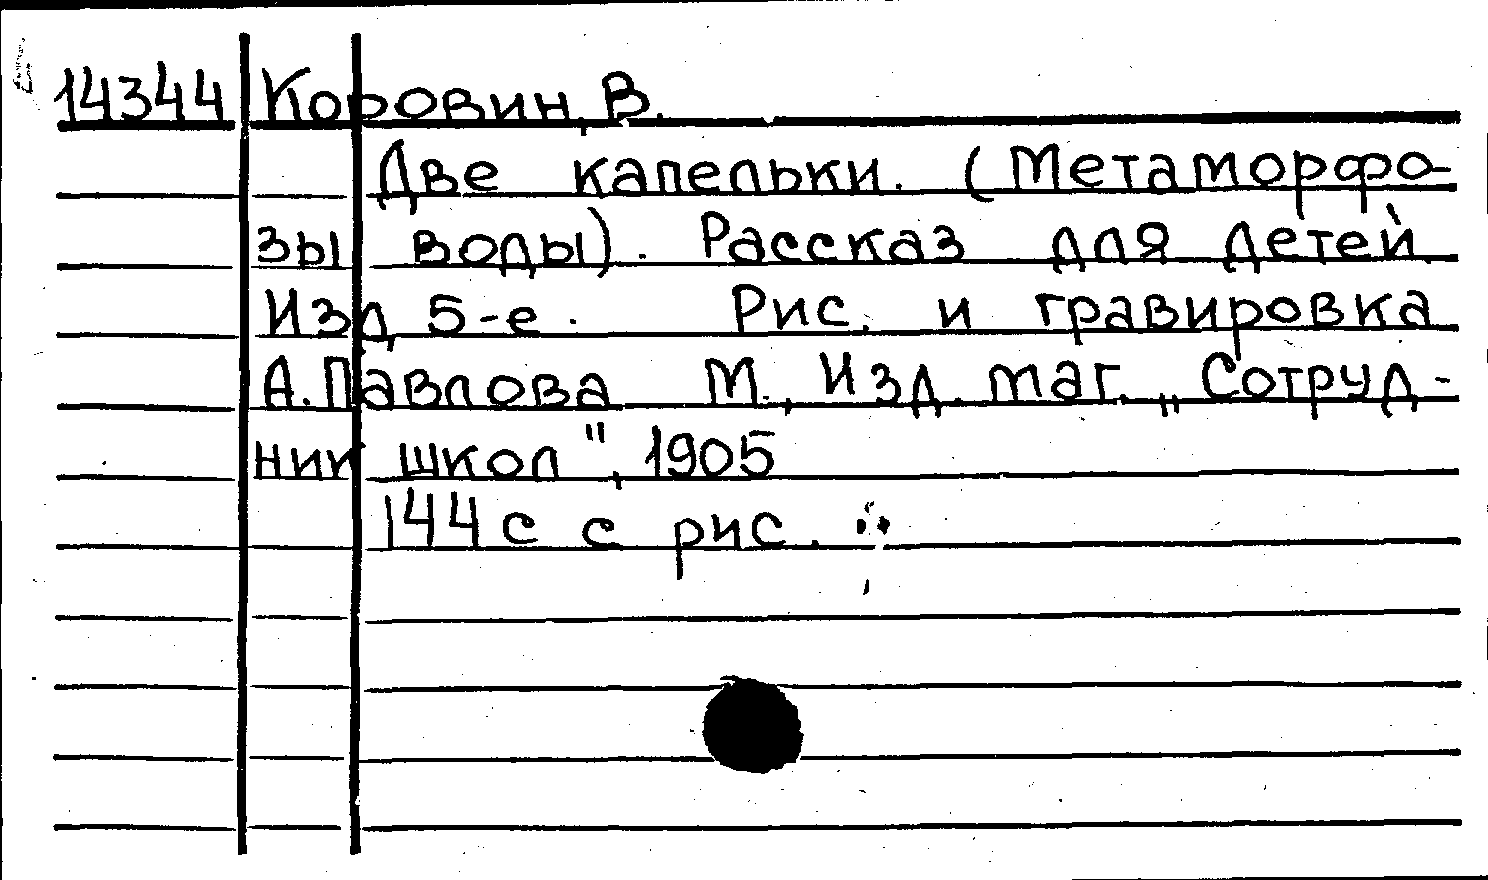 14344 Коровин, В.
Две капельки. (Метаморфо-
зы воды). Рассказ для детей
Изд, 5-е. Рис. и гравировка
А. Павлова М., Изд. маг. „Сотруд-
ник школ", 1905
144 с с рис.